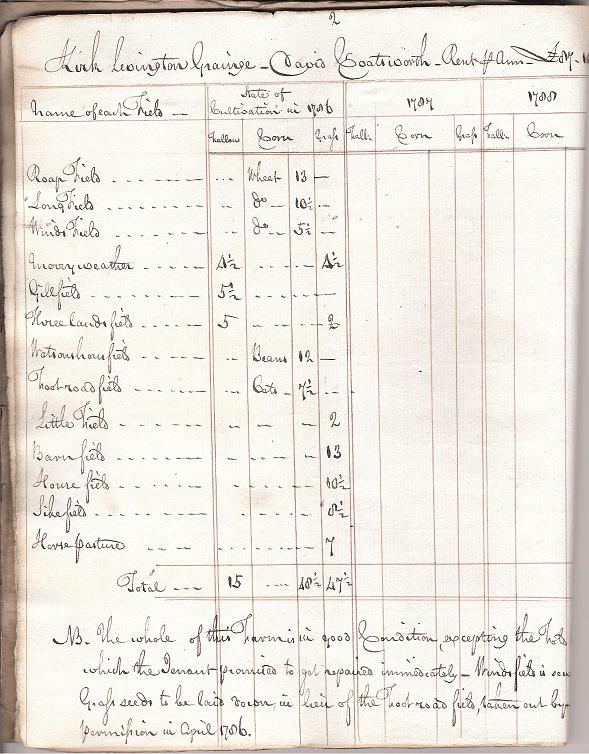 2
Kirk Levington Grainge - David Coatsworth - Rent ⅌ Ann - £87
Name of each Field — State of Cultivation in 1786 1787 1788
Fallow Corn Grass Fallw Corn Grass Fallw Corn
Roap Field - - - Wheat 13 —
Long Field - - - Do 10½ —
Winds Field - - - Do 5½ —
Morryweather - - - 4½ - - - 4½
Gillfield - - - 5½ - - -
Three lands field - - - 5 - - - 2
Watsonhorn field - - - Beans 12 —
Footroad field - - - Oats 7½ —
Little Field - - - 2
Barn field - - - 13
House field - - - 10½
Sike field - - - 8½
Horse pasture - - - 7
Total - - - 15 - - - 48½ 47½
NB. The whole of this Farm is in good Condition, excepting the
which the Tenant promised to get repaired immediately - Winds field is
Grass seeds to be laid down, in lieu of the Footroad field, taken out by
permission in April 1786.